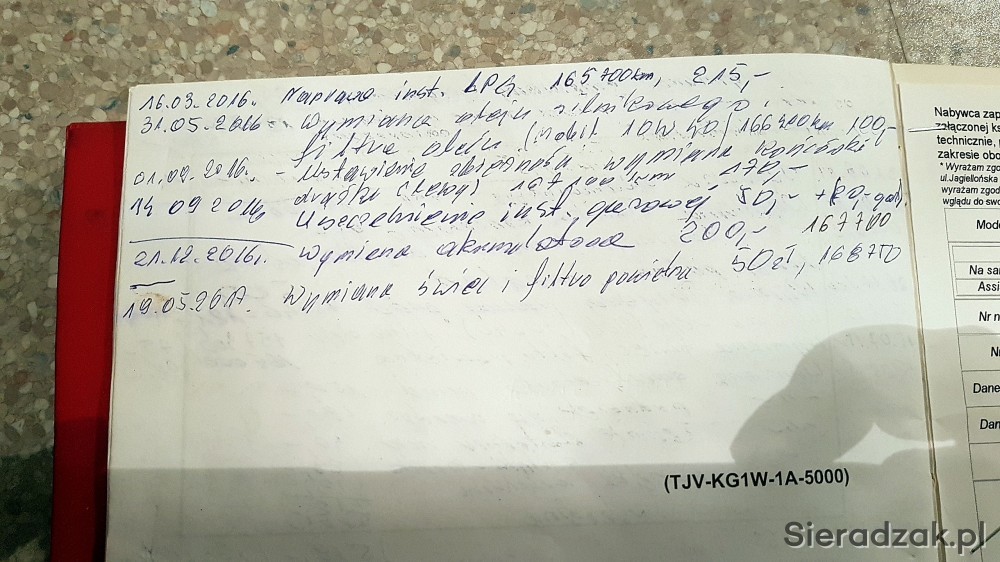 16.03.2016r. Naprawa inst. LPG 165700km, 215,-
31.05.2016r. Wymiana oleju silnikowego i
filtra oleju (Mobil 10W40) 166400km 100,-
01.09.2016r. - Ustawienie zbieżności wymiana końcówki
drążka (lewy) 167 km 170,-
14 09 2016r Uszczelnienie inst. gazowej 50,-
21.12.2016r. Wymiana akumulatora 200,- 167700
19.05.2017. Wymiana świec i filtra powietrza 50zł, 168700
(TJV-KG1W-1A-5000)
Nabywca zap
załączonej k
technicznie,
zakresie obo
* Wyrażam zgod
ul.Jagiellońska
wyrażam zgod
wglądu do swo
Mode
Na sa
Assi
Nr n
N
Dane
Dan
Sieradzak.pl